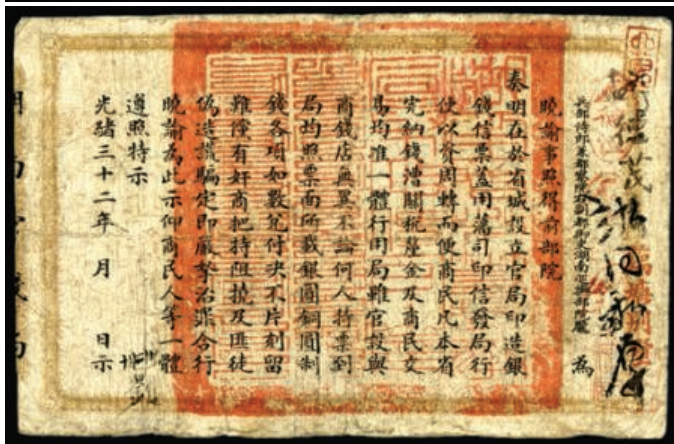 兵部侍郎兼都察院右副都御史湖南巡撫部院龐 為
曉諭事照得前部院
奏明在於省城設立官局印造銀
錢信票蓋用藩司印信發局行
使以資周轉而便商民凡本省
完納錢漕關稅釐金及商民交
易均准一體行用局雖官設與
商錢店無異不論何人持票到
局均照票面所載銀圓銅圓制
錢各項如數兌付決不片刻留
難倘有奸商把持阻撓及匪徒
偽造謊騙定即嚴拏治罪合行
曉諭為此示仰商民人等一體
遵照特示
光緒三十二年 月 日示